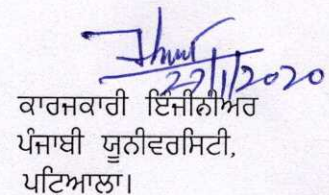 22/1/2020
ਕਾਰਜਕਾਰੀ ਇੰਜੀਨੀਅਰ
ਪੰਜਾਬੀ ਯੂਨੀਵਰਸਿਟੀ,
ਪਟਿਆਲਾ।